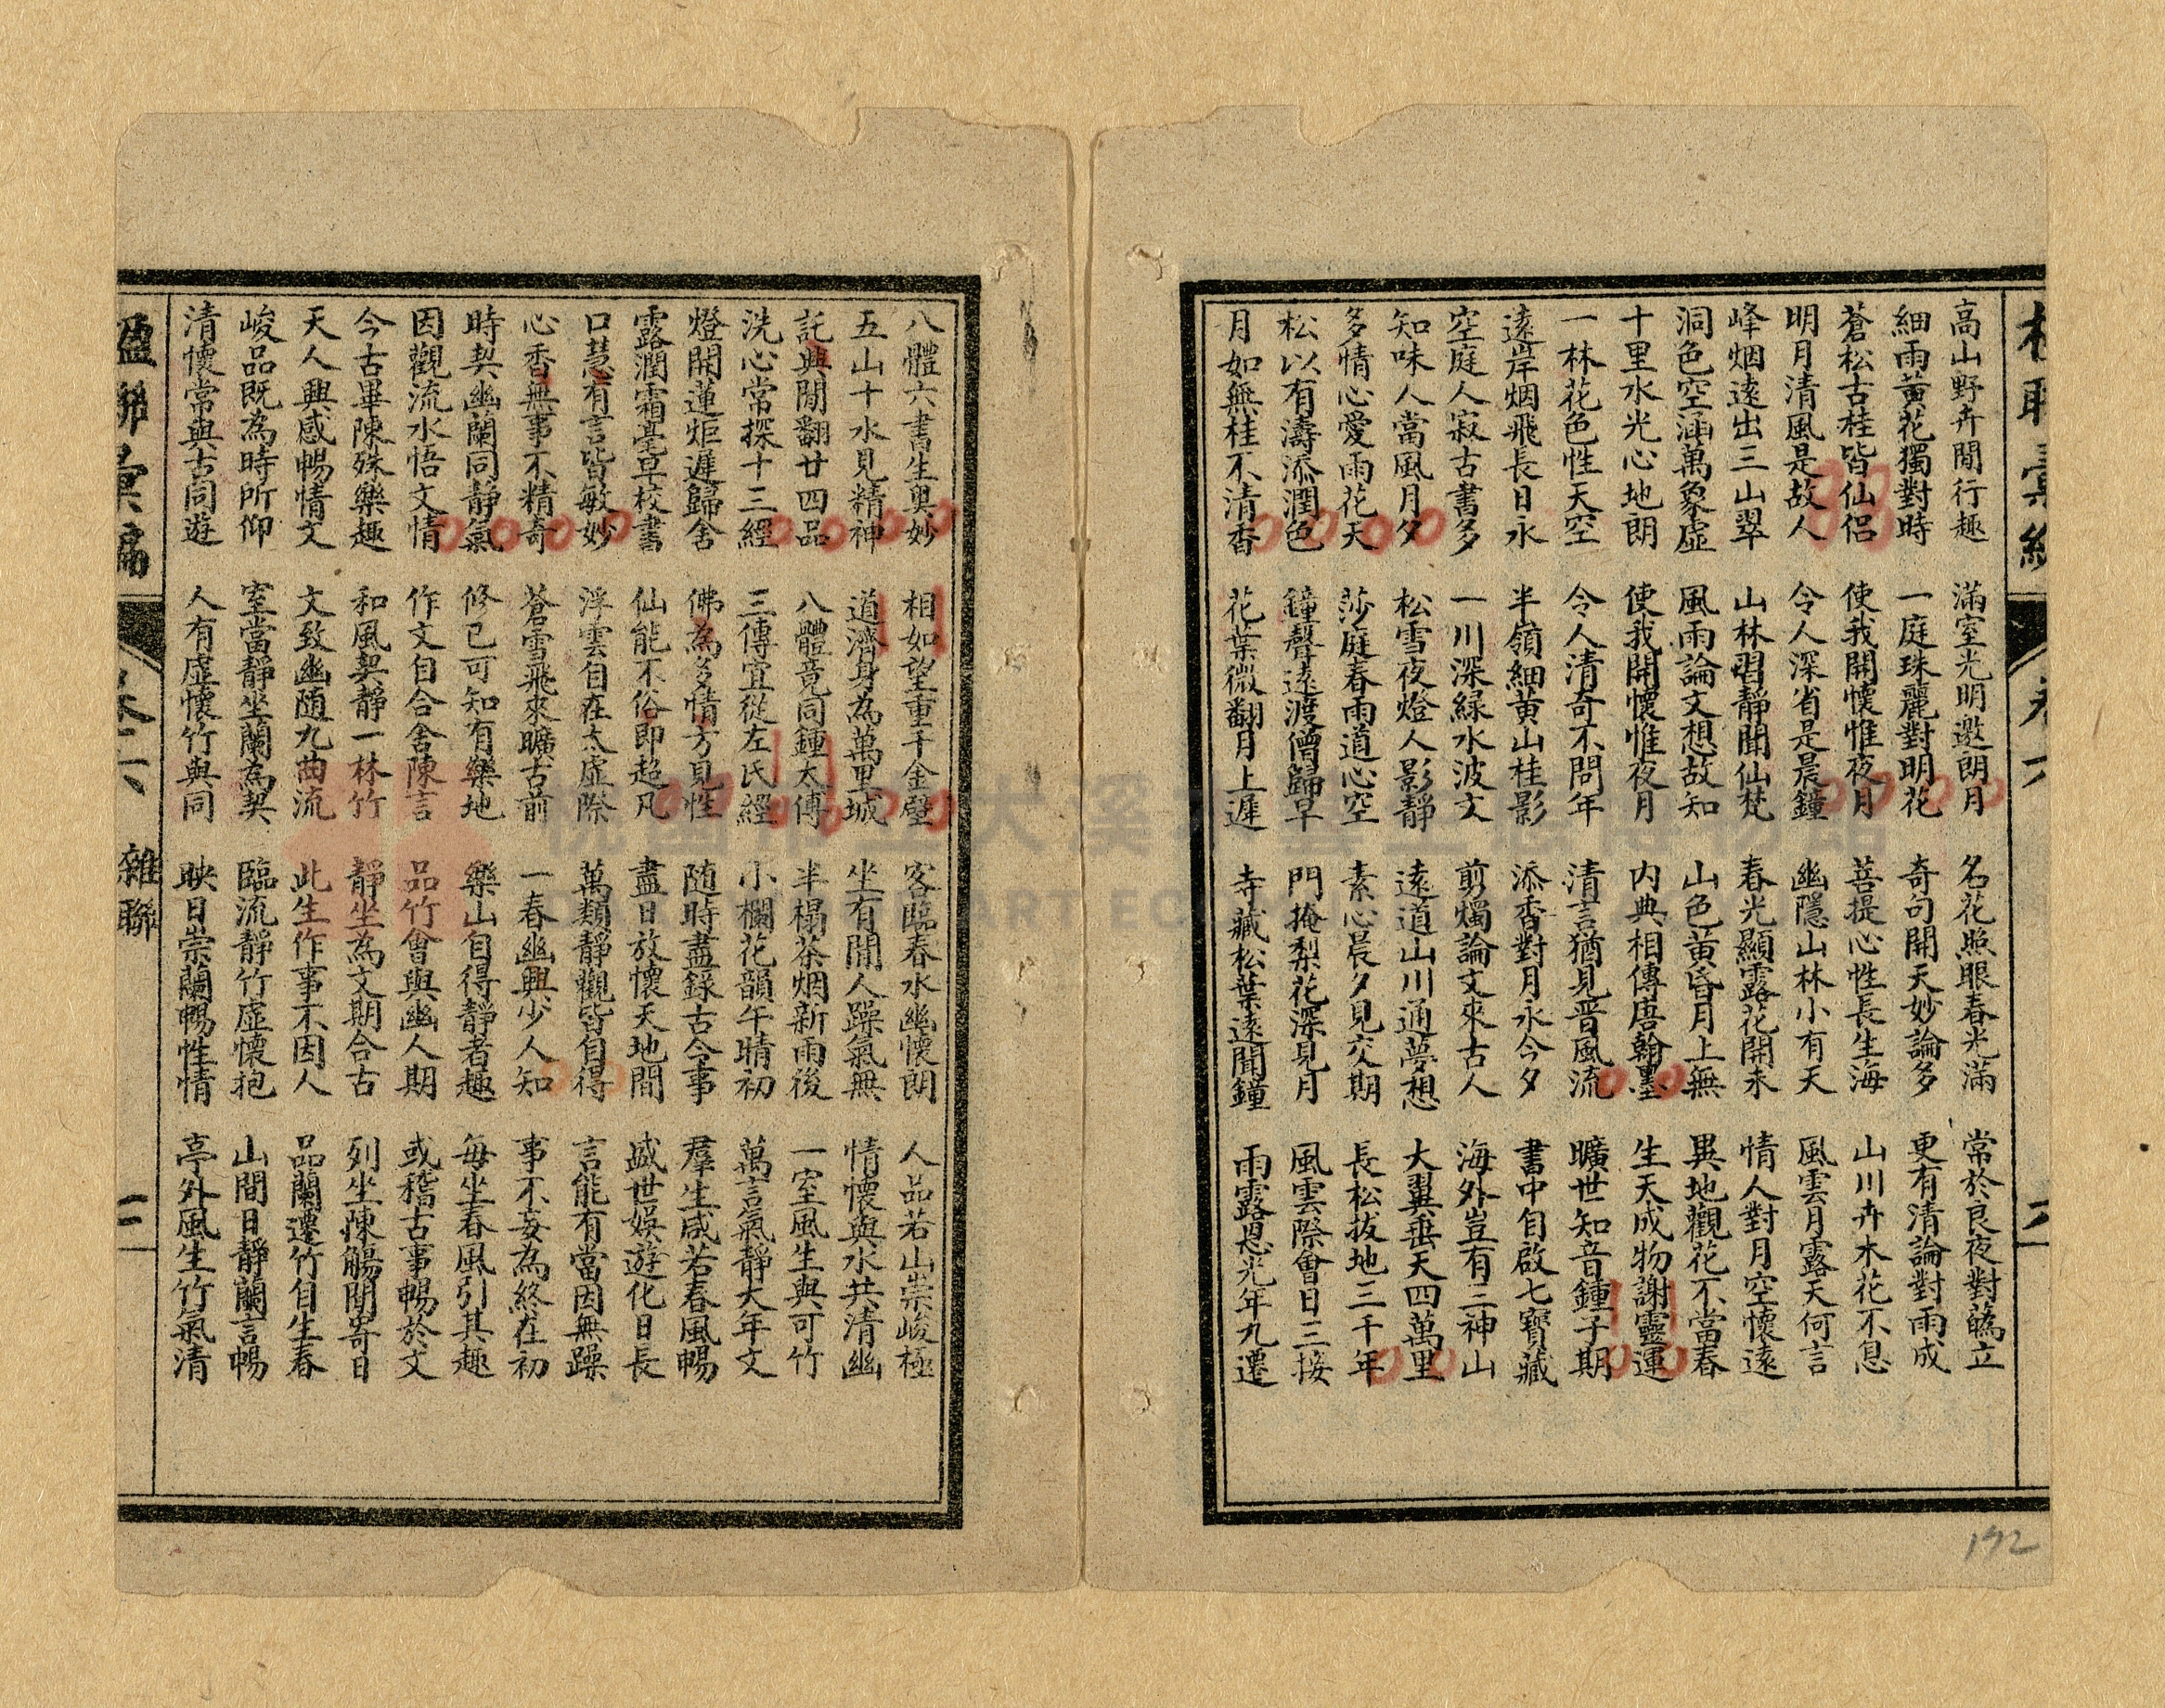 楹聯彙編 卷六 二
高山野卉閒行趣 滿室光明邀朗月 名花照眼春光滿 常於良夜對立
細雨黃花獨對時 一庭珠麗對明花 奇句開天妙論多 更有清論對雨成
蒼松古桂皆仙侶 使我開懷惟夜月 菩提心性長生海 山川卉木花不息
明月清風是故人 令人深省是晨鐘 幽隱山林小有天 風雲月露天何言
峰烟遠出三山翠 山林習靜聞仙梵 春光顯露花開未 情人對月空懷遠
洞色空涵萬象虛 風雨論文想故知 山色黃昏月上無 異地觀花不當春
十里水光心地朗 使我開懷惟夜月 內典相傳唐翰墨 生天成物謝靈運
一林花色性天空 令人清奇不問年 清言猶見晉風流 曠世知音鍾子期
遠岸烟飛長日永 半嶺細黃山桂影 添香對月永今夕 書中自啟七寶藏
空庭人寂古書多 一川深綠水波文 剪燭論文來古人 海外豈有三神山
知味人當風月夕 松雪夜燈人影靜 遠道山川通夢想 大翼垂天四萬里
多情心愛雨花天 莎庭春雨道心空 素心晨夕見交期 長松拔地三千年
松以有濤添潤色 鐘聲遠渡僧歸早 門掩梨花深見月 風雲際會日三接
月如無桂不清香 花葉微翻月上遲 寺藏松葉遠聞鐘 雨露恩光年九遷
192
八體六書生奧妙 相如望重千金璧 客臨春水幽懷朗 人品若山崇峻極
五山十水見精神 道濟身為萬里城 坐有閒人躁氣無 情懷與水共清幽
託興閒翻廿四品 八體竟同鍾太傅 半榻茶烟新雨後 一室風生與可竹
洗心常探十三經 三傳宜從左氏經 小欄花韻午晴初 萬言氣靜大年文
燈開蓮炬遲歸舍 佛為多情方見性 隨時盡錄古今事 羣生咸若春風暢
露潤霜毫早校書 仙能不俗即超凡 盡日放懷天地間 盛世娛遊化日長
口慧有言皆敏妙 浮雲自在太虛際 萬類靜觀皆自得 言能有當因無躁
心香無事不精奇 蒼雪飛來曠古前 一春幽興少人知 事不妄為終在初
時契幽蘭同靜氣 修己可知有樂地 樂山自得靜者趣 每坐春風引其趣
因觀流水悟文情 作文自合舍陳言 品竹會與幽人期 或稽古事暢於文
今古畢陳殊樂趣 和風契靜一林竹 靜坐為文期合古 列坐陳觴閒寄日
天人興感暢情文 文致幽隨九曲流 此生作事不因人 品蘭遷竹自生春
峻品既為時所仰 室當靜坐蘭為契 臨流靜竹虛懷抱 山間日靜蘭言暢
清懷常與古同遊 人有虛懷竹與同 映日崇蘭暢性情 亭外風生竹氣清
楹聯彙編 卷六 雜聯 三